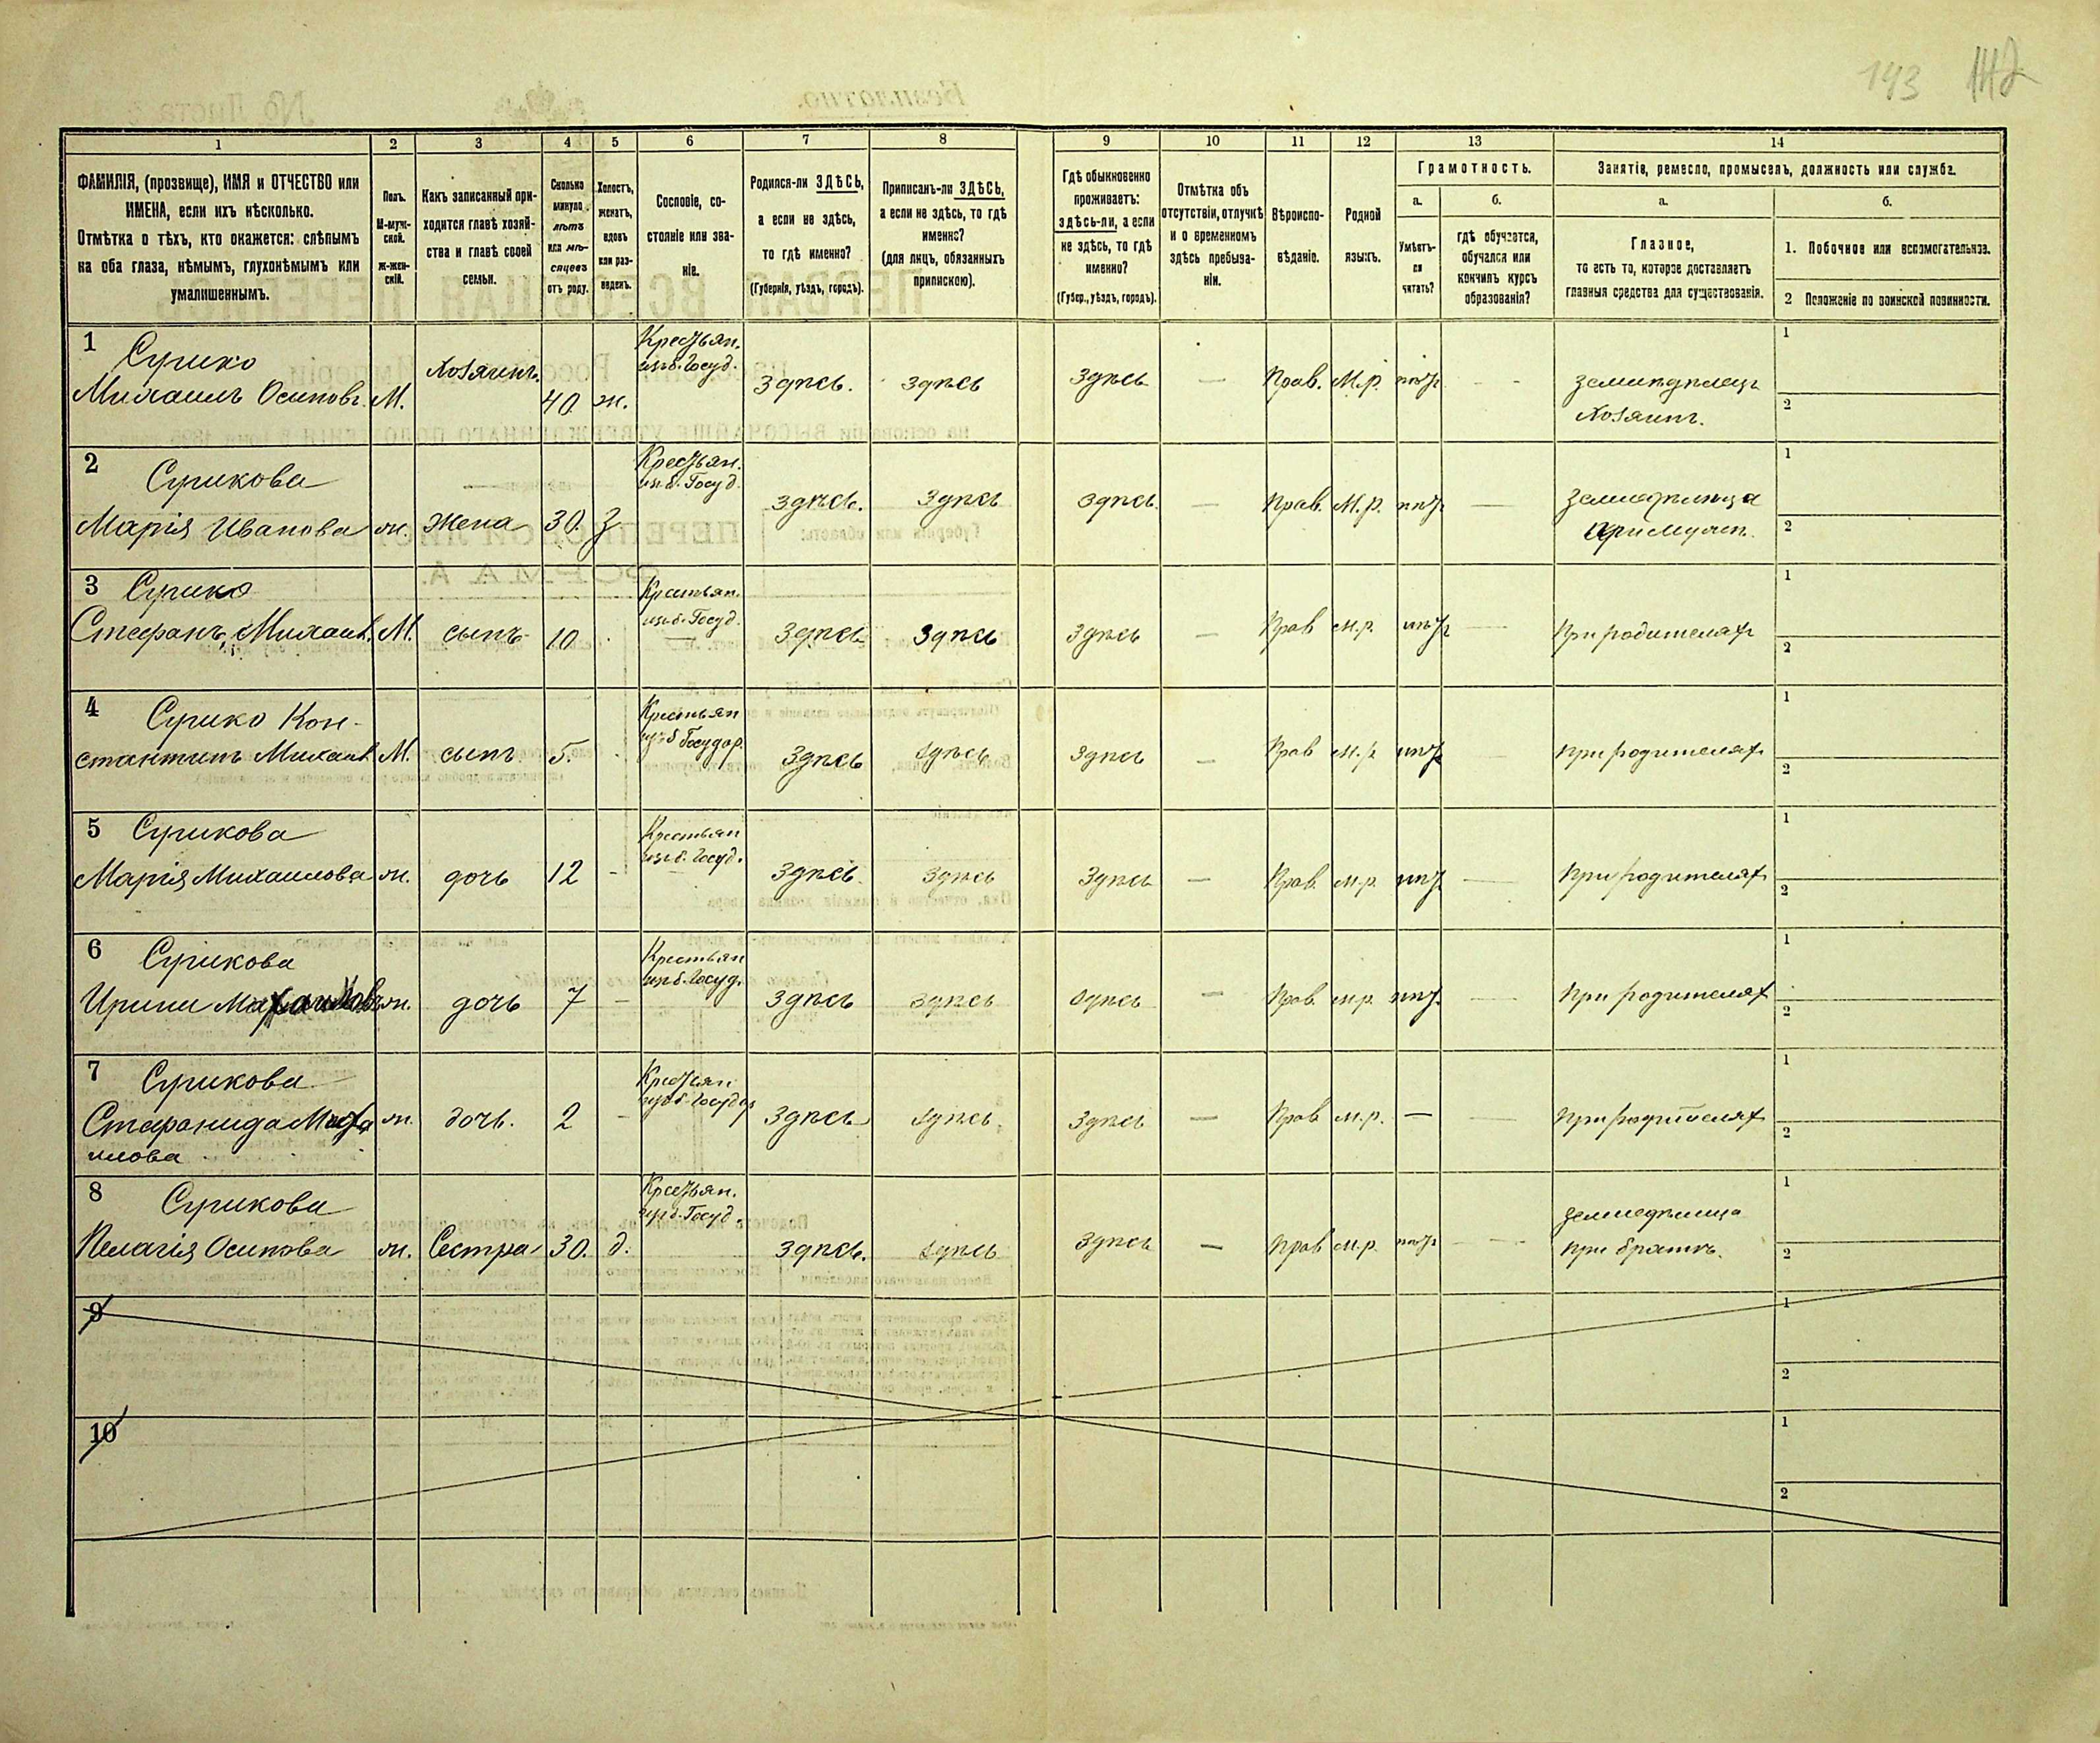 143 142
1 2 3 4 5 6 7 8 9 10 11 12 13 14
ФАМИЛІЯ, (прозвище), ИМЯ и ОТЧЕСТВО или
ИМЕНА, если ихъ нѣсколько.
Отмѣтка о тѣхъ, кто окажется: слѣпымъ
на оба глаза, нѣмымъ, глухонѣмымъ или
умалишеннымъ.
Полъ.
М-муж-
ской.
ж-жен-
скій.
Какъ записанный при-
ходится главѣ хозяй-
ства и главѣ своей
семьи.
Сколько
минуло
лѣтъ
или мѣ-
сяцевъ
отъ роду.
Холостъ,
женатъ,
вдовъ
или раз-
веденъ.
Сословіе, со-
стояніе или зва-
ніе.
Родился-ли ЗДѢСЬ,
а если не здѣсь,
то гдѣ именно?
(Губернія, уѣздъ, городъ).
Приписанъ-ли ЗДѢСЬ,
а если не здѣсь, то гдѣ
именно?
(для лицъ, обязанныхъ
припискою).
Гдѣ обыкновенно
проживаетъ:
здѣсь-ли, а если
не здѣсь, то гдѣ
именно?
(Губер., уѣздъ, городъ).
Отмѣтка объ
отсутствіи, отлучкѣ
и о временномъ
здѣсь пребыва-
ніи.
Вѣроиспо-
вѣданіе.
Родной
языкъ.
Грамотность.
а.
Умѣетъ-
ли
читать?
б.
гдѣ обучается,
обучался или
кончилъ курсъ
образованія?
Занятіе, ремесло, промыселъ, должность или служба.
а.
Главное,
то есть то, которое доставляетъ
главныя средства для существованія.
б.
1. Побочное или вспомогательное.
2 Положеніе по воинской повинности.
1 Сурико Крестьян. 1
Хозяинъ. изъ б. Госуд.
Михаилъ Осиповъ М. 40 ж. здѣсь. здѣсь здѣсь — Прав. М.р. нѣтъ - - земледѣлецъ
Хозяинъ. 2
2 Сурикова Крестьян. 1
из. б. Госуд.
Марія Иванова ж. Жена 30. З здѣсь. здѣсь здѣсь — Прав. М.р. нѣтъ — земледѣлица
при мужѣ. 2
3 Сурико Крестьян. 1
из. б. Госуд.
Стефанъ Михаил. М. сынъ 10 здѣсь здѣсь здѣсь — Прав м.р. нѣтъ — При родителяхъ 2
4 Сурико Кон- Крестьян 1
изъ б Государ.
стантинъ Михаил М. сынъ 5. здѣсь здѣсь здѣсь — Прав м.р нѣтъ — при родителях 2
5 Сурикова Крестьян 1
изъ б. Госуд.
Марія Михаилова ж. дочь 12 - здѣсь здѣсь здѣсь — Прав. м.р. нѣт — При родителях 2
6 Сурикова Крестьян 1
изъ б. Госуд.
Ирини Михаилов ж. дочь 7 - здѣсь здѣсь здѣсь — Прав. м.р нѣт. — При родителях 2
7 Сурикова Крестьян 1
изъ б. Государ
Стефанида Миха ж. дочь. 2 - здѣсь здѣсь. здѣсь — Прав м.р. — — При родителях
илова 2
8 Сурикова Крестьян. 1
изъ б. Госуд.
земледѣлица
Пелагія Осипова ж. Сестра 30. д. здѣсь. здѣсь здѣсь — прав м.р. нѣтъ — - при братѣ. 2
9 1
2
10 1
2